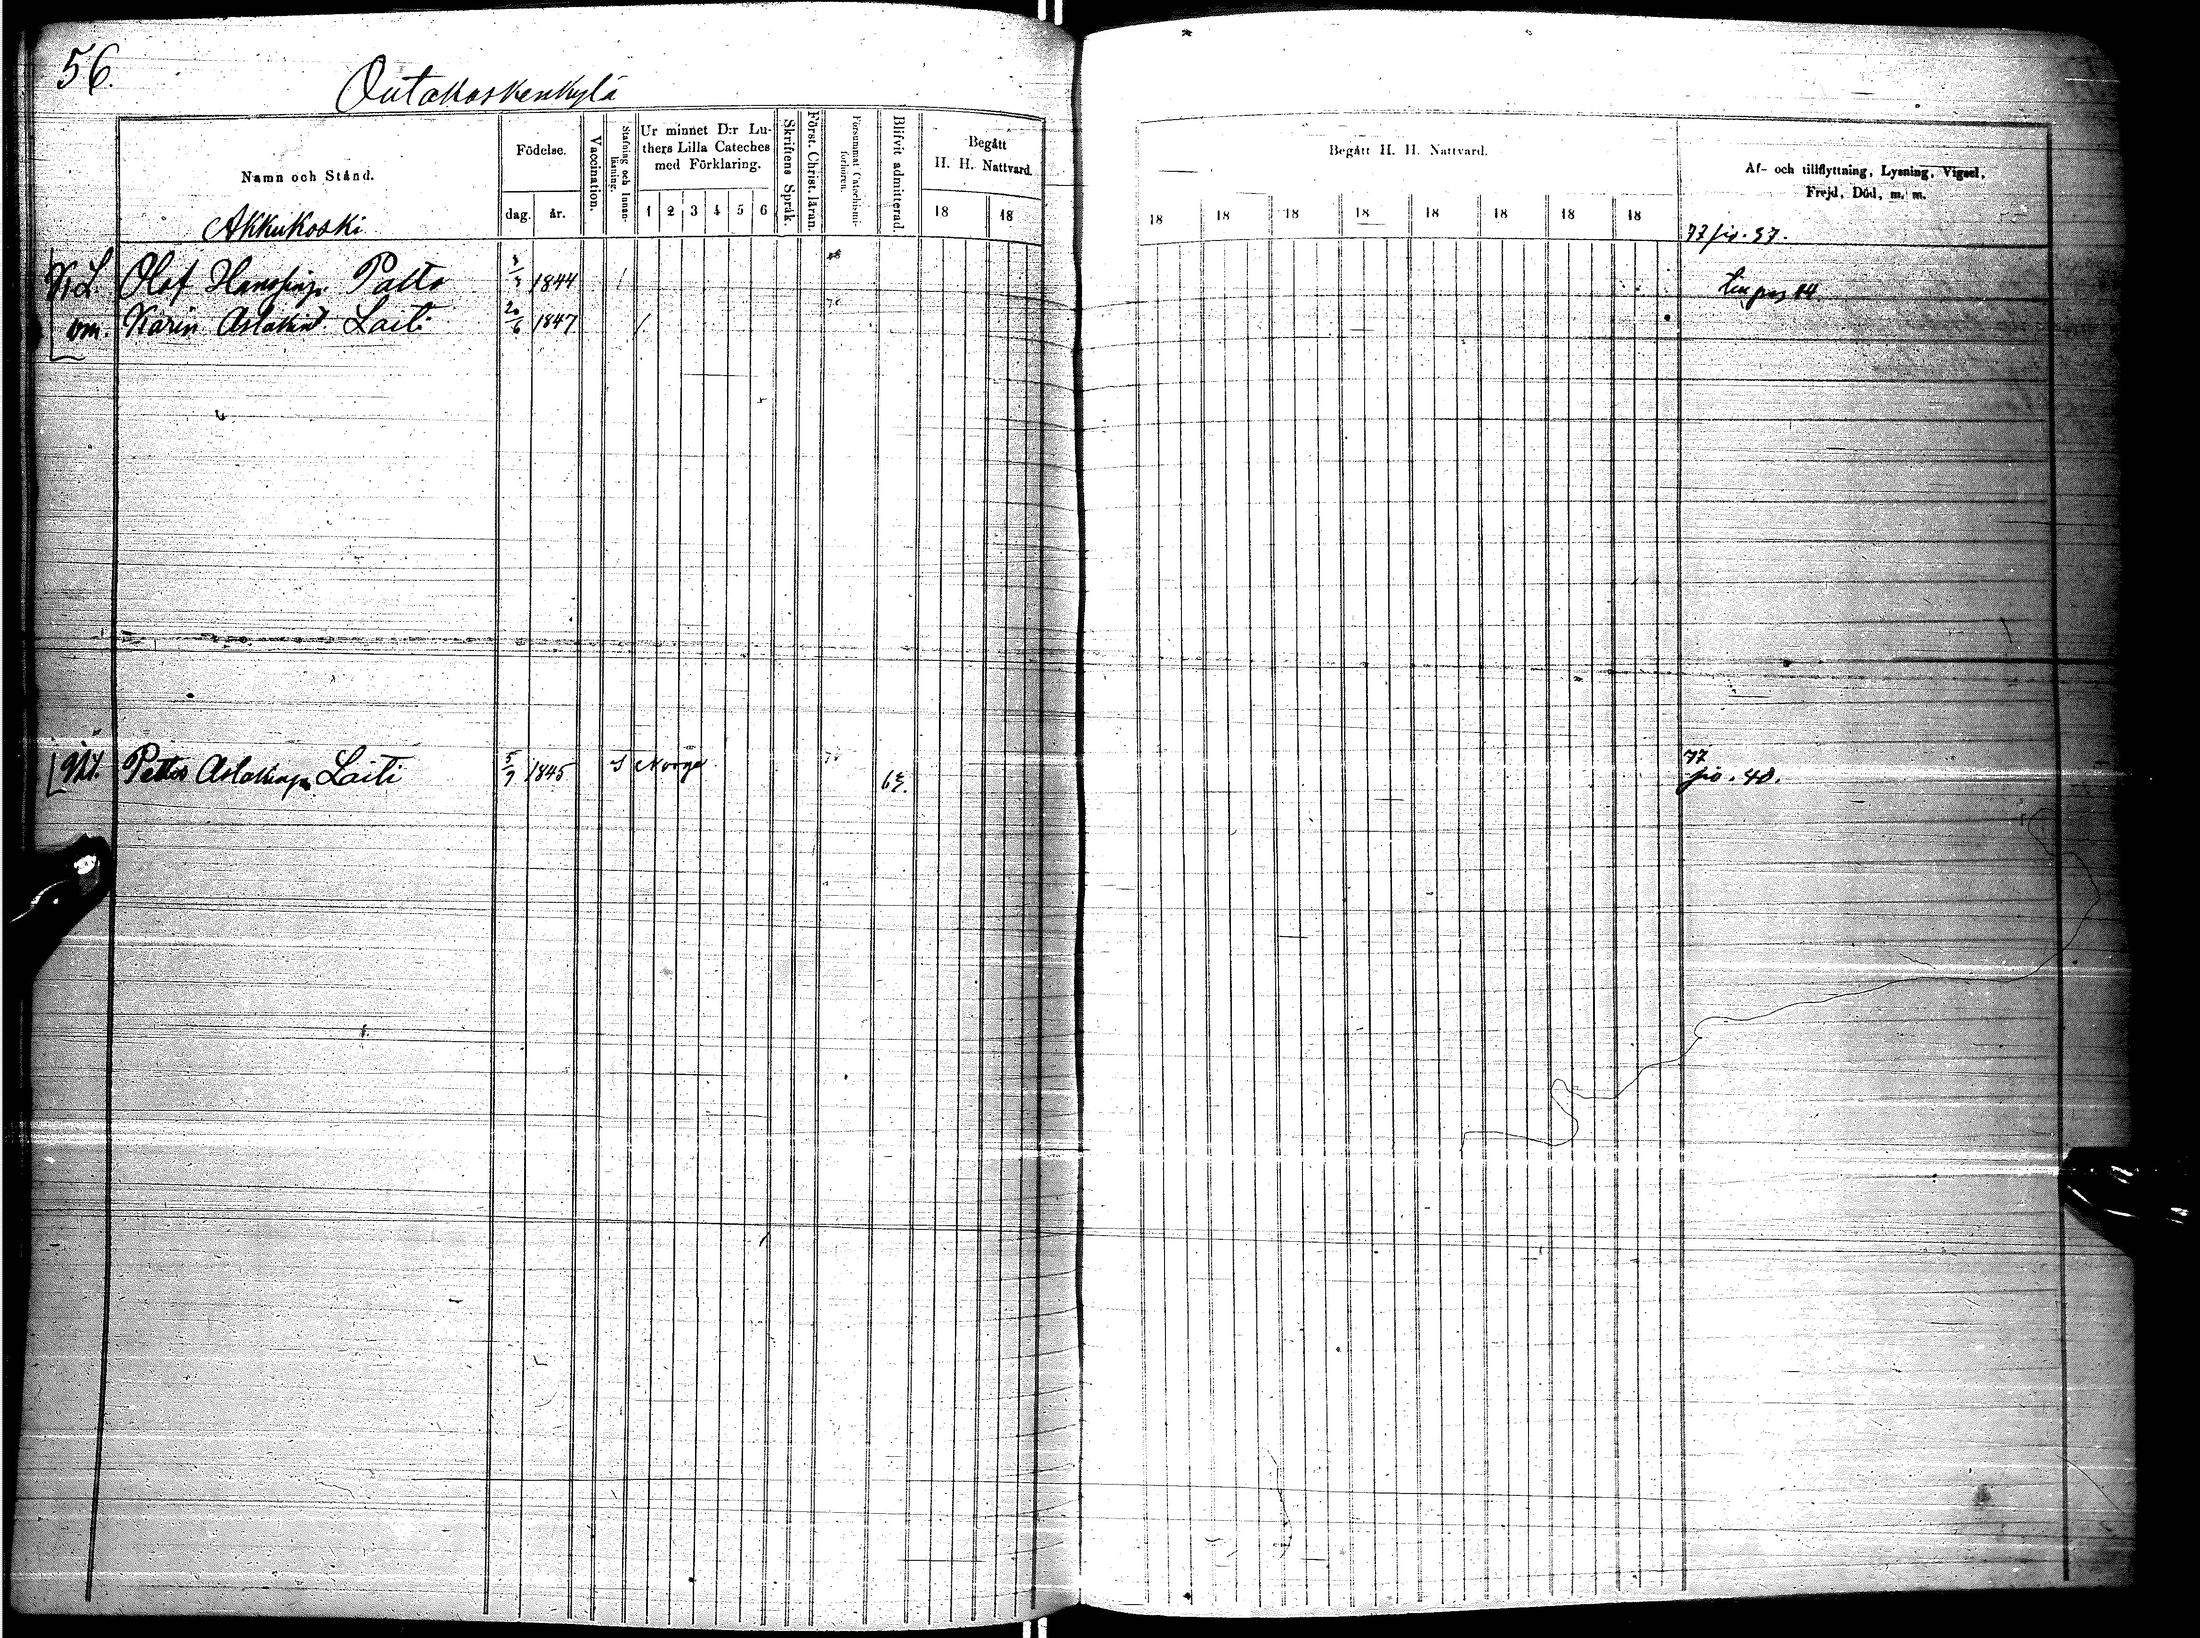 56.
Outakoskenkylä
Namn och Stånd.
Födelse.
dag. år.
Vaccination.
Stafning och Innan-
läsning.
Ur minnet D:r Lu-
thers Lilla Cateches
med Förklaring.
1 2 3 4 5 6
Skriftens Språk.
Först. Christ. läran.
Försummat Catechismi-
förhören.
Blifvit admitterad.
Begått
H. H. Nattvard.
18 18
Akkukoski
Olof Hanssinp. Palto 1844
om. Karin Aslaksd. Laiti 20/6 1847
Petter Aslakinp. Laiti 5/9 1845 I Norge
Begått H. H. Nattvard.
18 18 18 18 18 18 18 18
Af- och tillflyttning, Lysning, Vigsel,
Frejd, Död, m. m.
77